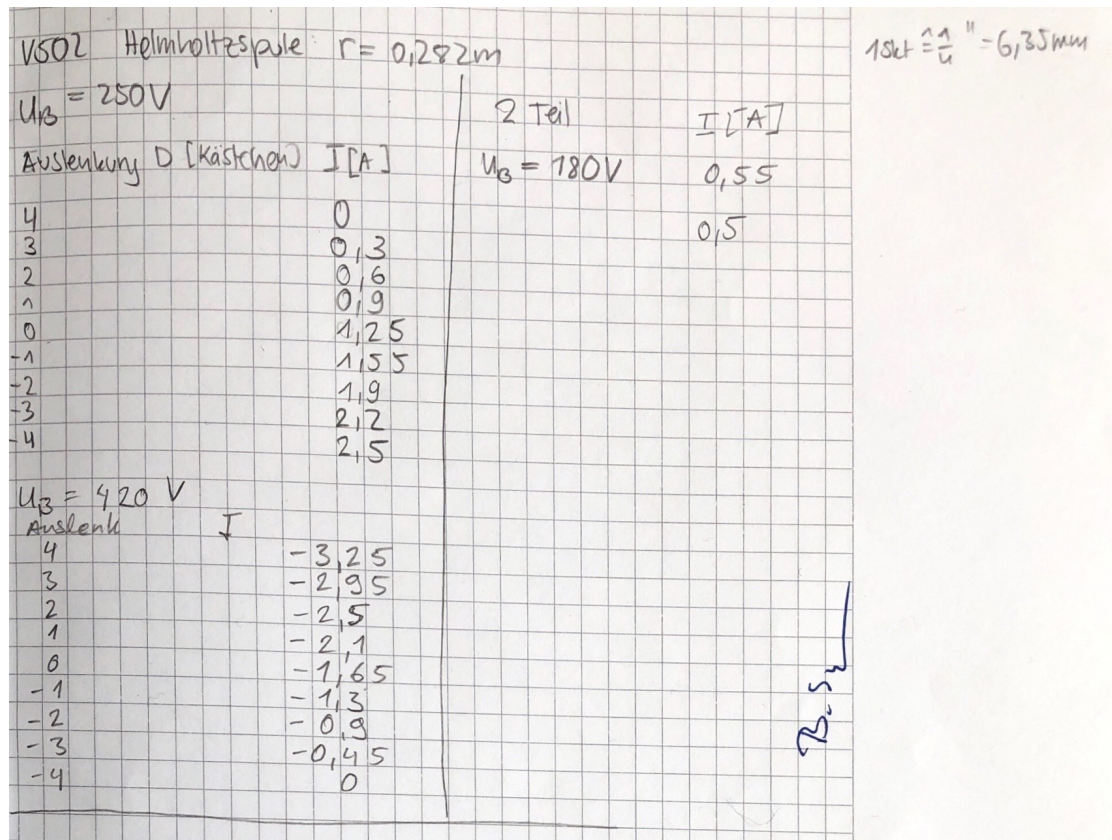 V502 Helmholtzspule r = 0,282m
1Skt ≙ 1/4 " = 6,35mm
U_B = 250V
Auslenkung D [Kästchen] I[A]
4 0
3 0,3
2 0,6
1 0,9
0 1,25
-1 1,55
-2 1,9
-3 2,2
-4 2,5
U_B = 420 V
Auslenk I
4 -3,25
3 -2,95
2 -2,5
1 -2,1
0 -1,65
-1 -1,3
-2 -0,9
-3 -0,45
-4 0
2 Teil I [A]
U_B = 180V 0,55
0,5